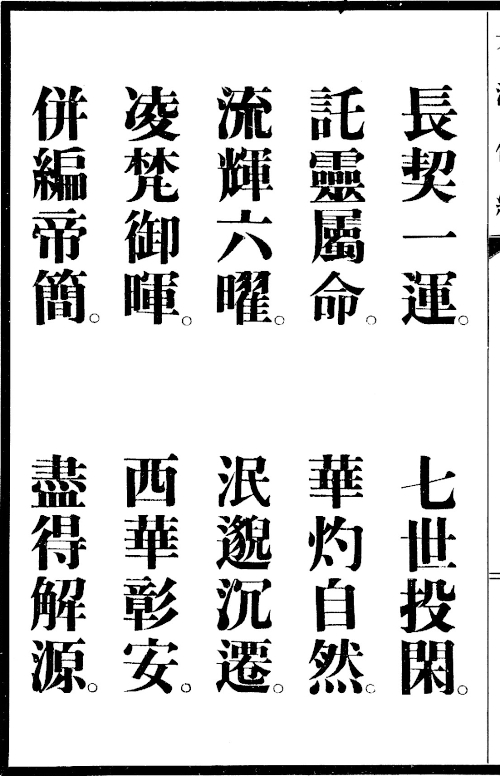 長契一運。七世投閑。
託靈屬命。華灼自然。
流輝六曜。泯邈沉遷。
凌梵御暉。西華彰安。
併編帝簡。盡得解源。